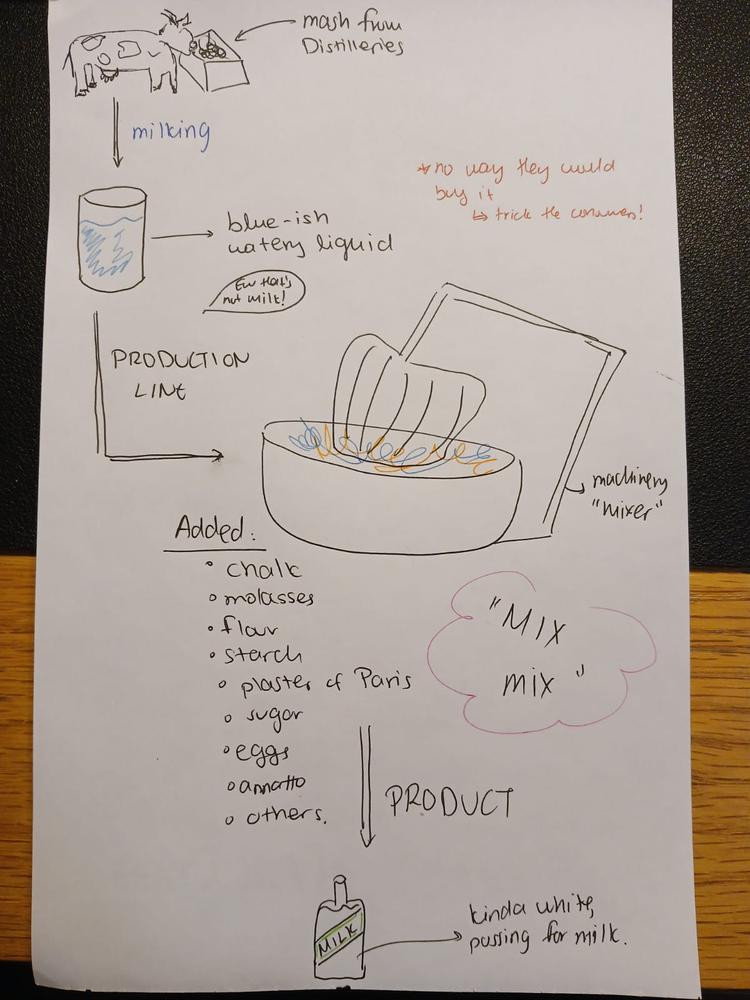 mash from
Distilleries
milking
* no way they would
buy it
↳ trick the consumers!
blue-ish
watery liquid
Ew that's
not milk!
PRODUCTION
LINE
machinery
"mixer"
Added:
• chalk
• molasses
• flour
• starch
• plaster of Paris
• sugar
• eggs
• annatto
• others.
"MIX
mix"
PRODUCT
MILK
kinda white,
passing for milk.